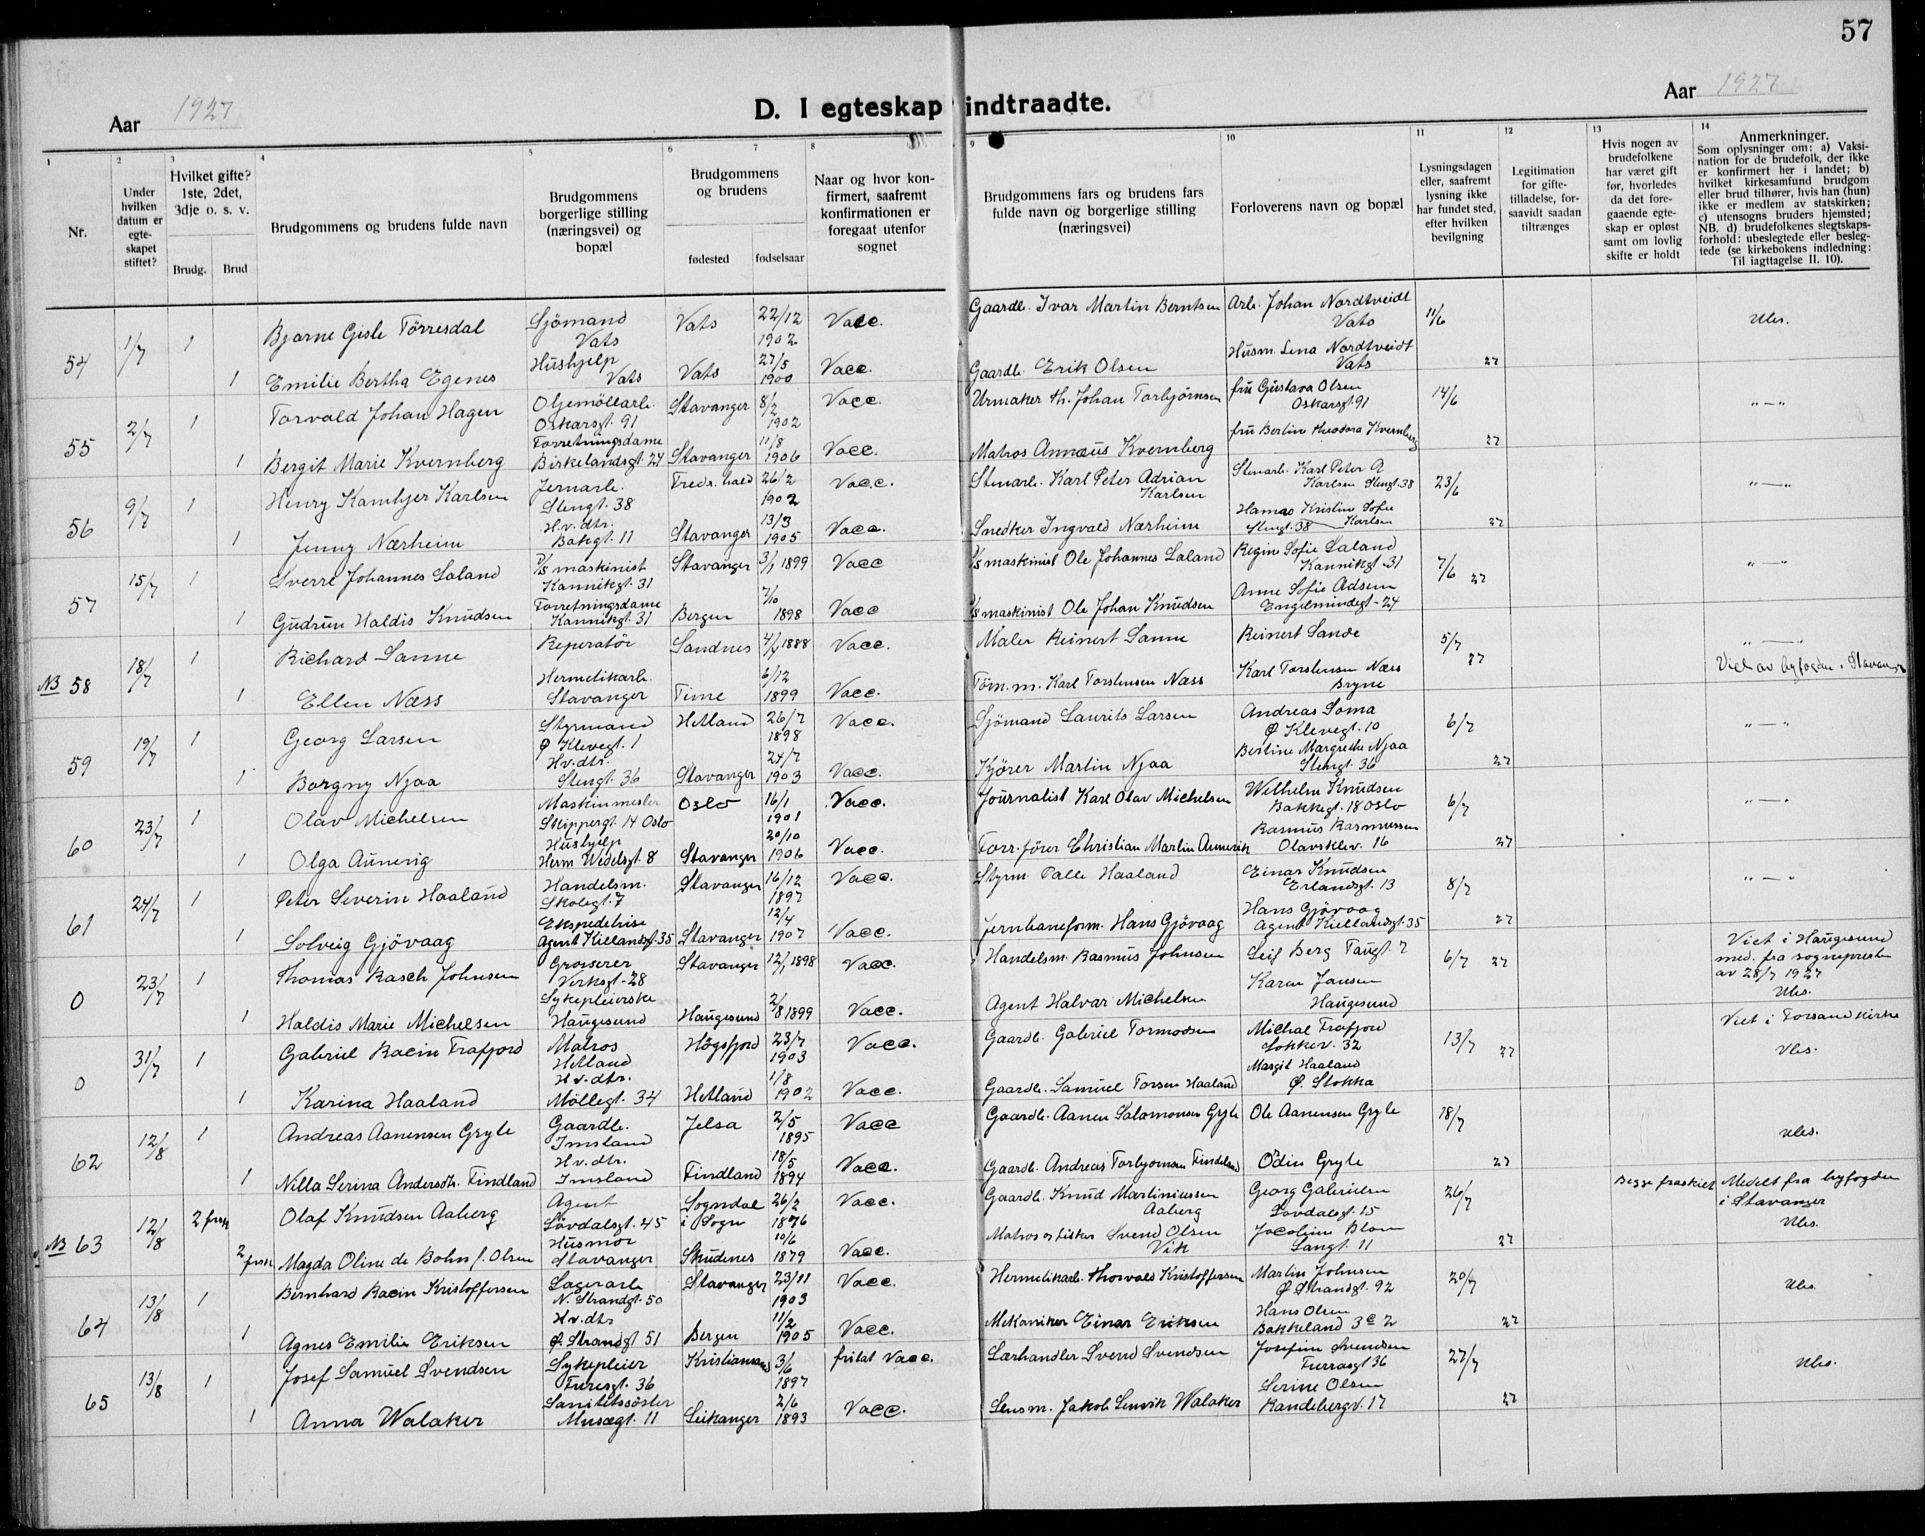 57
Aar 1927
D. I egteskap indtraadte.
Aar 1927
1 2 3 4 5 6 7 8 9 10 11 12 13 14
Nr.
Under hvilken datum er egte-skapet stiftet?
Hvilket gifte? 1ste, 2det, 3dje o. s. v.
Brudg. Brud
Brudgommens og brudens fulde navn
Brudgommens borgerlige stilling (næringsvei) og bopæl
Brudgommens og brudens
fødested fødselsaar
Naar og hvor kon-firmert, saafremt konfirmationen er foregaat utenfor sognet
Brudgommens fars og brudens fars fulde navn og borgerlige stilling (næringsvei)
Forloverens navn og bopæl
Lysningsdagen eller, saafremt lysning ikke har fundet sted, efter hvilken bevilgning
Legitimation for gifte-tilladelse, for-saavidt saadan tiltrænges
Hvis nogen av brudefolkene har været gift før, hvorledes da det fore-gaaende egte-skap er opløst samt om lovlig skifte er holdt
Anmerkninger.
Som oplysninger om: a) Vaksi-nation for de brudefolk, der ikke er konfirmert her i landet; b) hvilket kirkesamfund brudgom eller brud tilhører, hvis han (hun) ikke er medlem av statskirken; c) utensogns bruders hjemsted; NB. d) brudefolkenes slegtskaps-forhold: ubeslegtede eller besleg-tede (se kirkebokens indledning: Til iagttagelse II. 10).
54 1/7 1 Bjarne Gisle Tørresdal Sjömand Vats Vats 22/12 1902 Vacc. Gaardb. Ivar Martin Berntsen Arb. Johan Nordtveidt Vats 11/6 Ubs.
1 Emilie Bertha Egenes Hushjelp Vats Vats 27/5 1900 Vacc. Gaardb. Erik Olsen Husm. Lena Nordtveidt Vats 27
55 2/7 1 Torvald Johan Hagen Oljemöllarb. Oskarsgt. 91 Stavanger 8/2 1902 Vacc. Urmaker Th. Johan Torbjørnsen fru Gustava Olsen Oskarsgt. 91 14/6 "—"
1 Bergit Marie Kvernberg Forretningsdame Birkelandsgt 24 Stavanger 11/8 1906 Vacc. Matros Annæus Kvernberg fru Bertine Theodora Kvernberg 27
56 9/7 1 Henry Kambjer Karlsen Jernarb. Stengt. 38 Fredr.hald 26/2 1902 Vacc. Stenarb. Karl Peter Adrian Karlsen Stenarb. Karl Peter A Karlsen Stengt. 38 23/6 "—"
1 Jenny Nærheim H.v. dtr. Bakgt. 11 Stavanger 13/3 1905 Vacc. Snedker Ingvald Nærheim Kristine Sofie Karlsen Stengt. 38 27
57 15/7 1 Sverre Johannes Laland D/S maskinist Kannikgt. 31 Stavanger 3/1 1899 Vacc D/S maskinist Ole Johannes Laland Regine Sofie Laland Kannikgt. 31 7/6 27 "—"
1 Gudrun Haldis Knudsen Forretningsdame Kannikgt. 31 Bergen 7/10 1898 Vacc D/S maskinist Ole Johan Knudsen Anne Sofie Adsem Engelmindegt. 24
NB 58 18/7 1 Richard Sanne Reperatör Sandnes 4/7 1888 Vacc. Maler Reinert Sanne Reinert Sande 5/7 27 "—" Viet av byfogden i Stavanger
1 Ellen Næss Hermetikarb. Stavanger Time 6/12 1899 Vacc. Töm.m. Karl Torstensen Næss Karl Torstensen Næss Bryne
59 19/7 1 Georg Larsen Styrmand Ø Klevegt. 1 Hetland 26/7 1898 Vacc. Sjömand Laurits Larsen Andreas Soma Ø Klevegt. 10 6/7 "—"
1 Borgny Njaa H.v. dtr. Stengt. 36 Stavanger 24/7 1903 Vacc. Kjörer Martin Njaa Bertine Margrethe Njaa Stengt. 36 27
60 23/7 1 Olav Michelsen Maskinmester Skippergt. 14 Oslo Oslo 16/1 1901 Vacc. Journalist Karl Olav Michelsen Wilhelm Knudsen Bakkegt. 18 Oslo 6/7 "—"
1 Olga Aunevig Hushjelp Herm Wedelsgt 8 Stavanger 20/10 1906 Vacc. Forr.förer Christian Martin Aunevik Rasmus Rasmussen Olavsklev. 16 27
61 24/7 1 Peter Severin Haaland Handelsm. Skolegt. 7 Stavanger 16/12 1897 Vacc. Styrm. Palle Haaland Einar Knudsen Erlandsgt. 13 8/7 "—"
1 Solveig Gjövaag Ekspeditrise Agent Kiellandsgt. 35 Stavanger 12/4 1907 Vacc. Jernbaneform. Hans Gjövaag Hans Gjövaag Agent Kiellandsgt 35 27
0 23/7 1 Thomas Rasch Johnsen Grosserer Verksgt. 28 Stavanger 12/1 1898 Vacc. Handelsm. Rasmus Johnsen Leif Berg Taugt. 7 6/7 27 Viet i Haugesund med. fra sognepresten av 28/7 1927 Ubs.
1 Haldis Marie Michelsen Sykepleierske Haugesund Haugesund 2/8 1899 Vacc. Agent Halvar Michelsen Karen Jansen Haugesund
0 31/7 1 Gabriel Racin Frafjord Matros Hetland Högsfjord 23/7 1903 Vacc. Gaardb. Gabriel Tormodsen Michal Frafjord Lokkev. 32 13/7 27 Viet i Forsand kirke Ubs.
1 Karina Haaland H.v. dtr. Möllegt. 34 Hetland 1/8 1902 Vacc. Gaardb. Samuel Torsen Haaland Margit Haaland Ø. Stokka
62 12/8 1 Andreas Aanensen Gryte Gaardb. Imsland Jelsa 2/5 1895 Vacc Gaardb. Aanen Salomonsen Gryte Ole Aanensen Gryte 18/7 Ubs.
1 Nilla Serina Andersdtr. Findland H.v. dtr. Imsland Findland 18/5 1894 Vacc. Gaardb. Andreas Torbjørnsen Findeland Odin Gryte 27
NB 63 12/8 2 frsk Olaf Knudsen Aaberg Agent Lövdalsgt. 45 Sogndal i Sogn 26/2 1876 Vacc. Gaardb. Knud Martiniussen Aaberg Georg Gabrielsen Lovdalsgt. 15 26/7 Begge fraskilt Medelt fra byfogden i Stavanger Ubs.
2 frsk Magda Oline de Bohn f. Olsen Husmor Stavanger Skudenes 10/6 1879 Vacc. Matros og fisker Svend Olsen Vik Jacobine Blom Langt. 11 27
64 13/8 1 Bernhard Racin Kristoffersen Lagerarb N. Strandgt. 50 Stavanger 23/11 1903 Vacc. Hermetikarb. Thorvald Kristoffersen Martin Johnsen Ø Strandgt. 92 20/7 Ubs.
1 Agnes Emilie Eriksen H.v. dtr Ø Strandgt 51 Bergen 11/2 1905 Vacc. Mekaniker Einar Eriksen Hans Olsen Bakkeland 3e 2 27
65 13/8 1 Josef Samuel Svendsen Sykepleier Furesgt. 36 Kristiansand 3/6 1897 fritat Vacc. Lærhandler Svend Svendsen Josefine Svendsen Furrasgt 36 27/7 Ubs.
1 Anna Walaker Sanitetssöster Musegt. 11 Leikanger 2/6 1893 Vacc. Lensm. Jakob Lenvik Walaker Serine Olsen Randebergv. 17 27